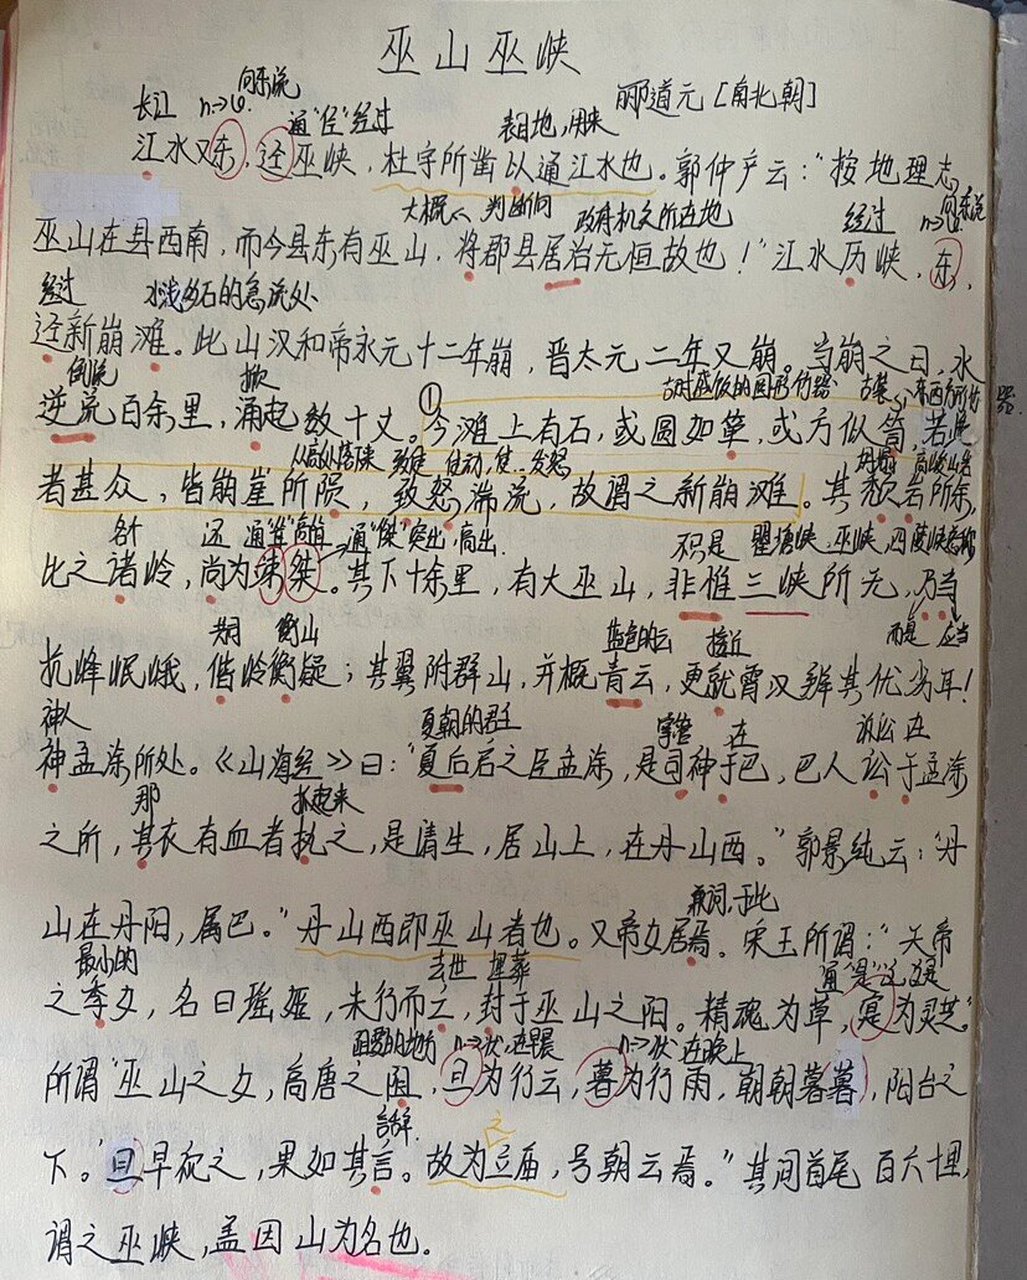 巫山巫峡
郦道元[南北朝]
长江 n→v. 向东流 通“径”经过 表目地,用来
江水又东,迳巫峡,杜宇所凿以通江水也。郭仲产云:“按地理志,
大概 判断词 政府机关所在地 经过 n→v. 向东流
巫山在县西南,而今县东有巫山,将郡县居治无恒故也!”江水历峡,东,
经过 水浅多石的急流处
迳新崩滩。此山汉和帝永元十二年崩,晋太元二年又崩。当崩之日,水
倒流 掀 古时盛饭的圆形竹器
逆流百余里,涌起数十丈。①今滩上有石,或圆如箪,或方似笥,若此
从高处落下来 致使 使动,使…发怒
者甚众,皆崩崖所陨,致怒湍流,故谓之新崩滩。其颓岩所余,
各个 还 通“崇”高 通“傑”突出,高出. 不只是 瞿塘峡、巫峡、西陵峡总称
比之诸岭,尚为竦桀。其下十余里,有大巫山,非惟三峡所无,乃当
共同 衡山 蓝色的云 接近 而是 应当
抗峰岷峨,偕岭衡疑;其翼附群山,并概青云,更就霄汉辨其优劣耳!
神人 夏朝的君主 掌管 在 诉讼 在
神孟涂所处。《山海经》曰:“夏后启之臣孟涂,是司神于巴,巴人讼于孟涂
那 抓起来
之所,其衣有血者执之,是请生,居山上,在丹山西。”郭景纯云:“丹
兼词,于此
山在丹阳,属巴。”丹山西即巫山者也。又帝女居焉。宋玉所谓:“天帝
最小的 去世 埋葬 通“是”,这是
之季女,名曰瑶姬,未行而亡,封于巫山之阳。精魂为草,寔为灵芝。”
阻险的地方 n→状,在早晨 n→状 在晚上
所谓“巫山之女,高唐之阻,旦为行云,暮为行雨,朝朝暮暮,阳台之
言辞. 之
下。”旦早视之,果如其言。故为立庙,号朝云焉。”其间首尾百六十里,
谓之巫峡,盖因山为名也。